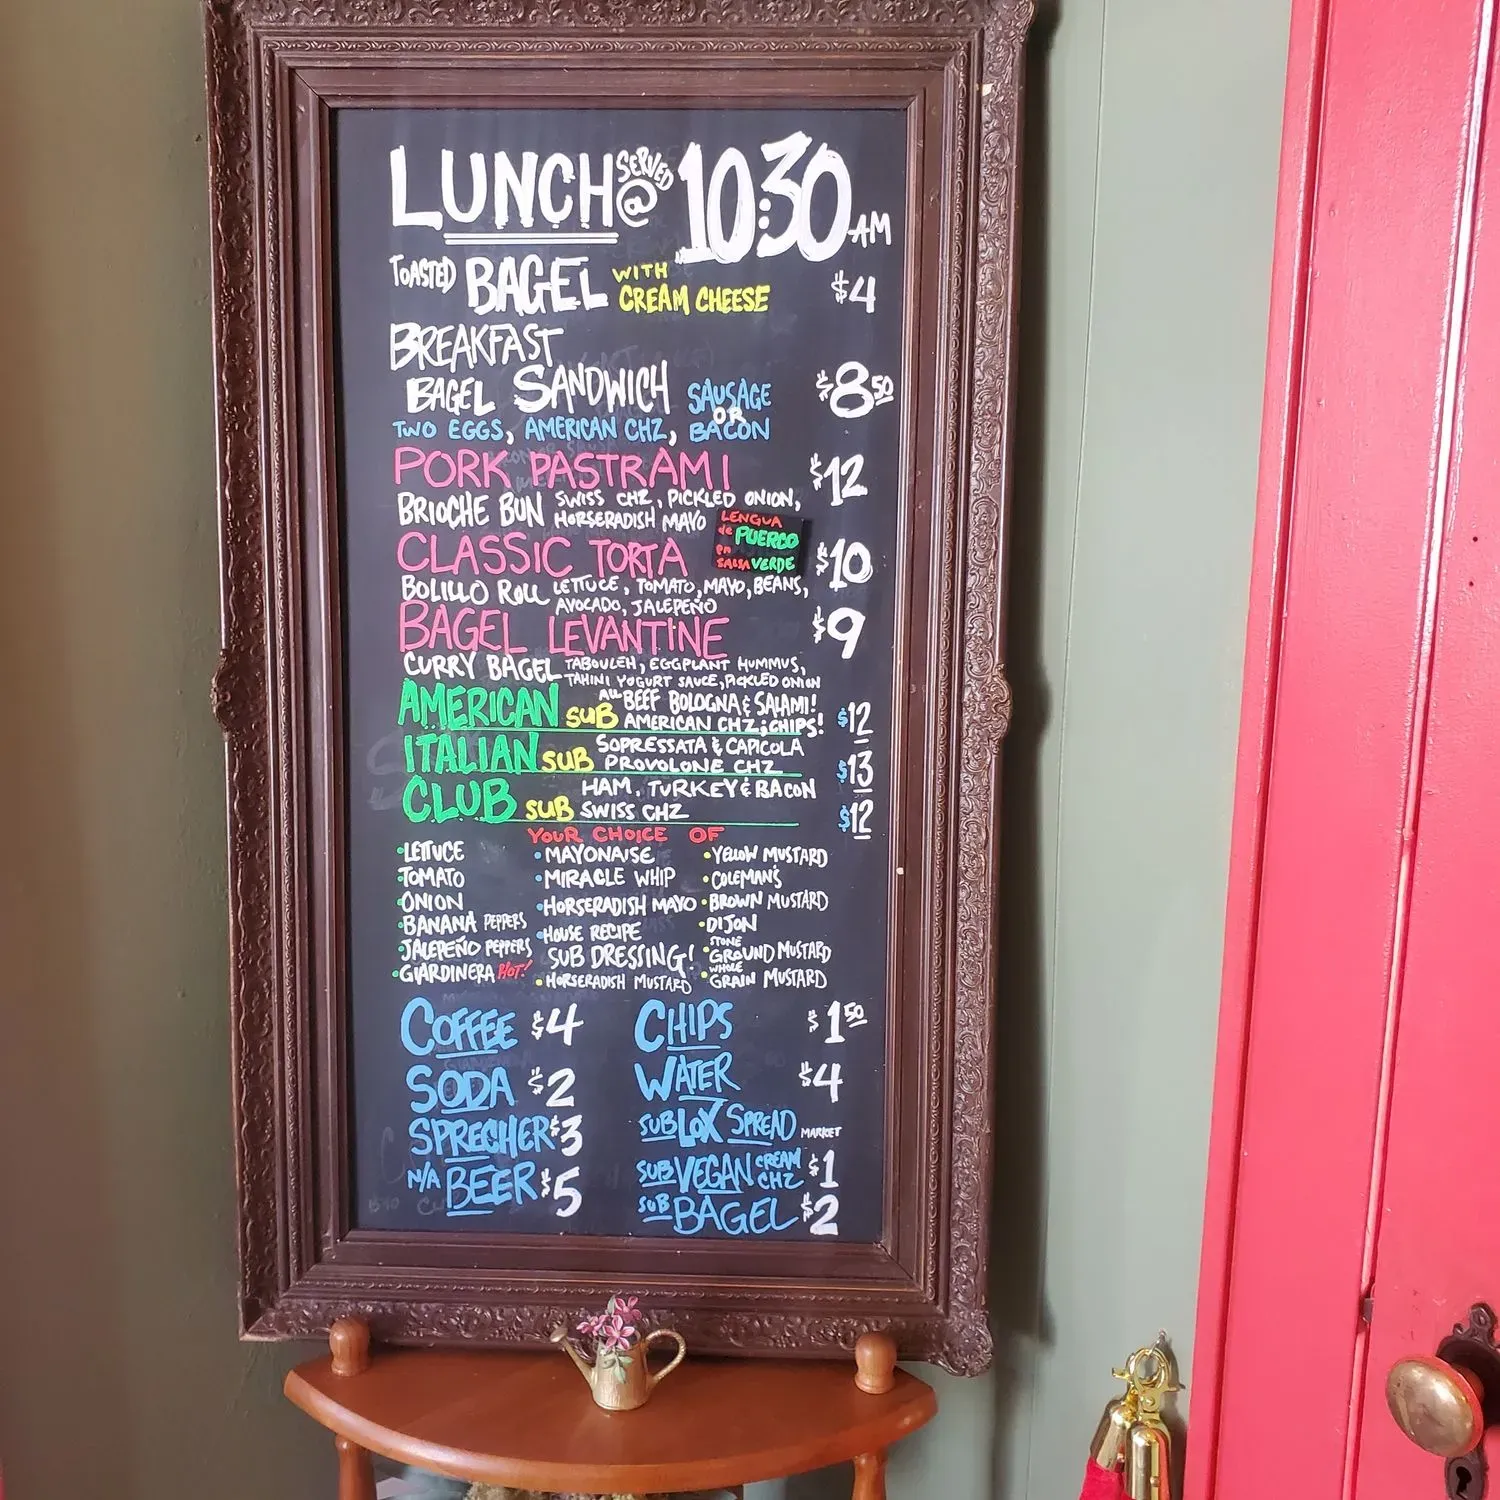 LUNCH SERVED @ 10:30 AM
TOASTED BAGEL WITH CREAM CHEESE $4
BREAKFAST
BAGEL SANDWICH SAUSAGE OR $8.50
TWO EGGS, AMERICAN CHZ, BACON
PORK PASTRAMI $12
BRIOCHE BUN SWISS CHZ, PICKLED ONION,
HORSERADISH MAYO
LENGUA
de PUERCO
en
SALSA VERDE
CLASSIC TORTA $10
BOLILLO ROLL LETTUCE, TOMATO, MAYO, BEANS,
AVOCADO, JALEPEÑO
BAGEL LEVANTINE $9
CURRY BAGEL TABOULEH, EGGPLANT HUMMUS,
TAHINI YOGURT SAUCE, PICKLED ONION
AMERICAN SUB ALL BEEF BOLOGNA & SALAMI!
AMERICAN CHZ; CHIPS! $12
ITALIAN SUB SOPRESSATA & CAPICOLA
PROVOLONE CHZ $13
CLUB SUB HAM, TURKEY & BACON
SWISS CHZ $12
YOUR CHOICE OF
•LETTUCE
•TOMATO
•ONION
•BANANA PEPPERS
•JALEPEÑO PEPPERS
•GIARDINERA HOT!
•MAYONAISE
•MIRACLE WHIP
•HORSERADISH MAYO
•HOUSE RECIPE
SUB DRESSING!
•HORSERADISH MUSTARD
•YELLOW MUSTARD
•COLEMAN'S
•BROWN MUSTARD
•DIJON
•STONE GROUND MUSTARD
•WHOLE GRAIN MUSTARD
COFFEE $4
SODA $2
SPRECHER $3
N/A BEER $5
CHIPS $1.50
WATER $4
SUB LOX SPREAD MARKET
SUB VEGAN CREAM CHZ $1
SUB BAGEL $2